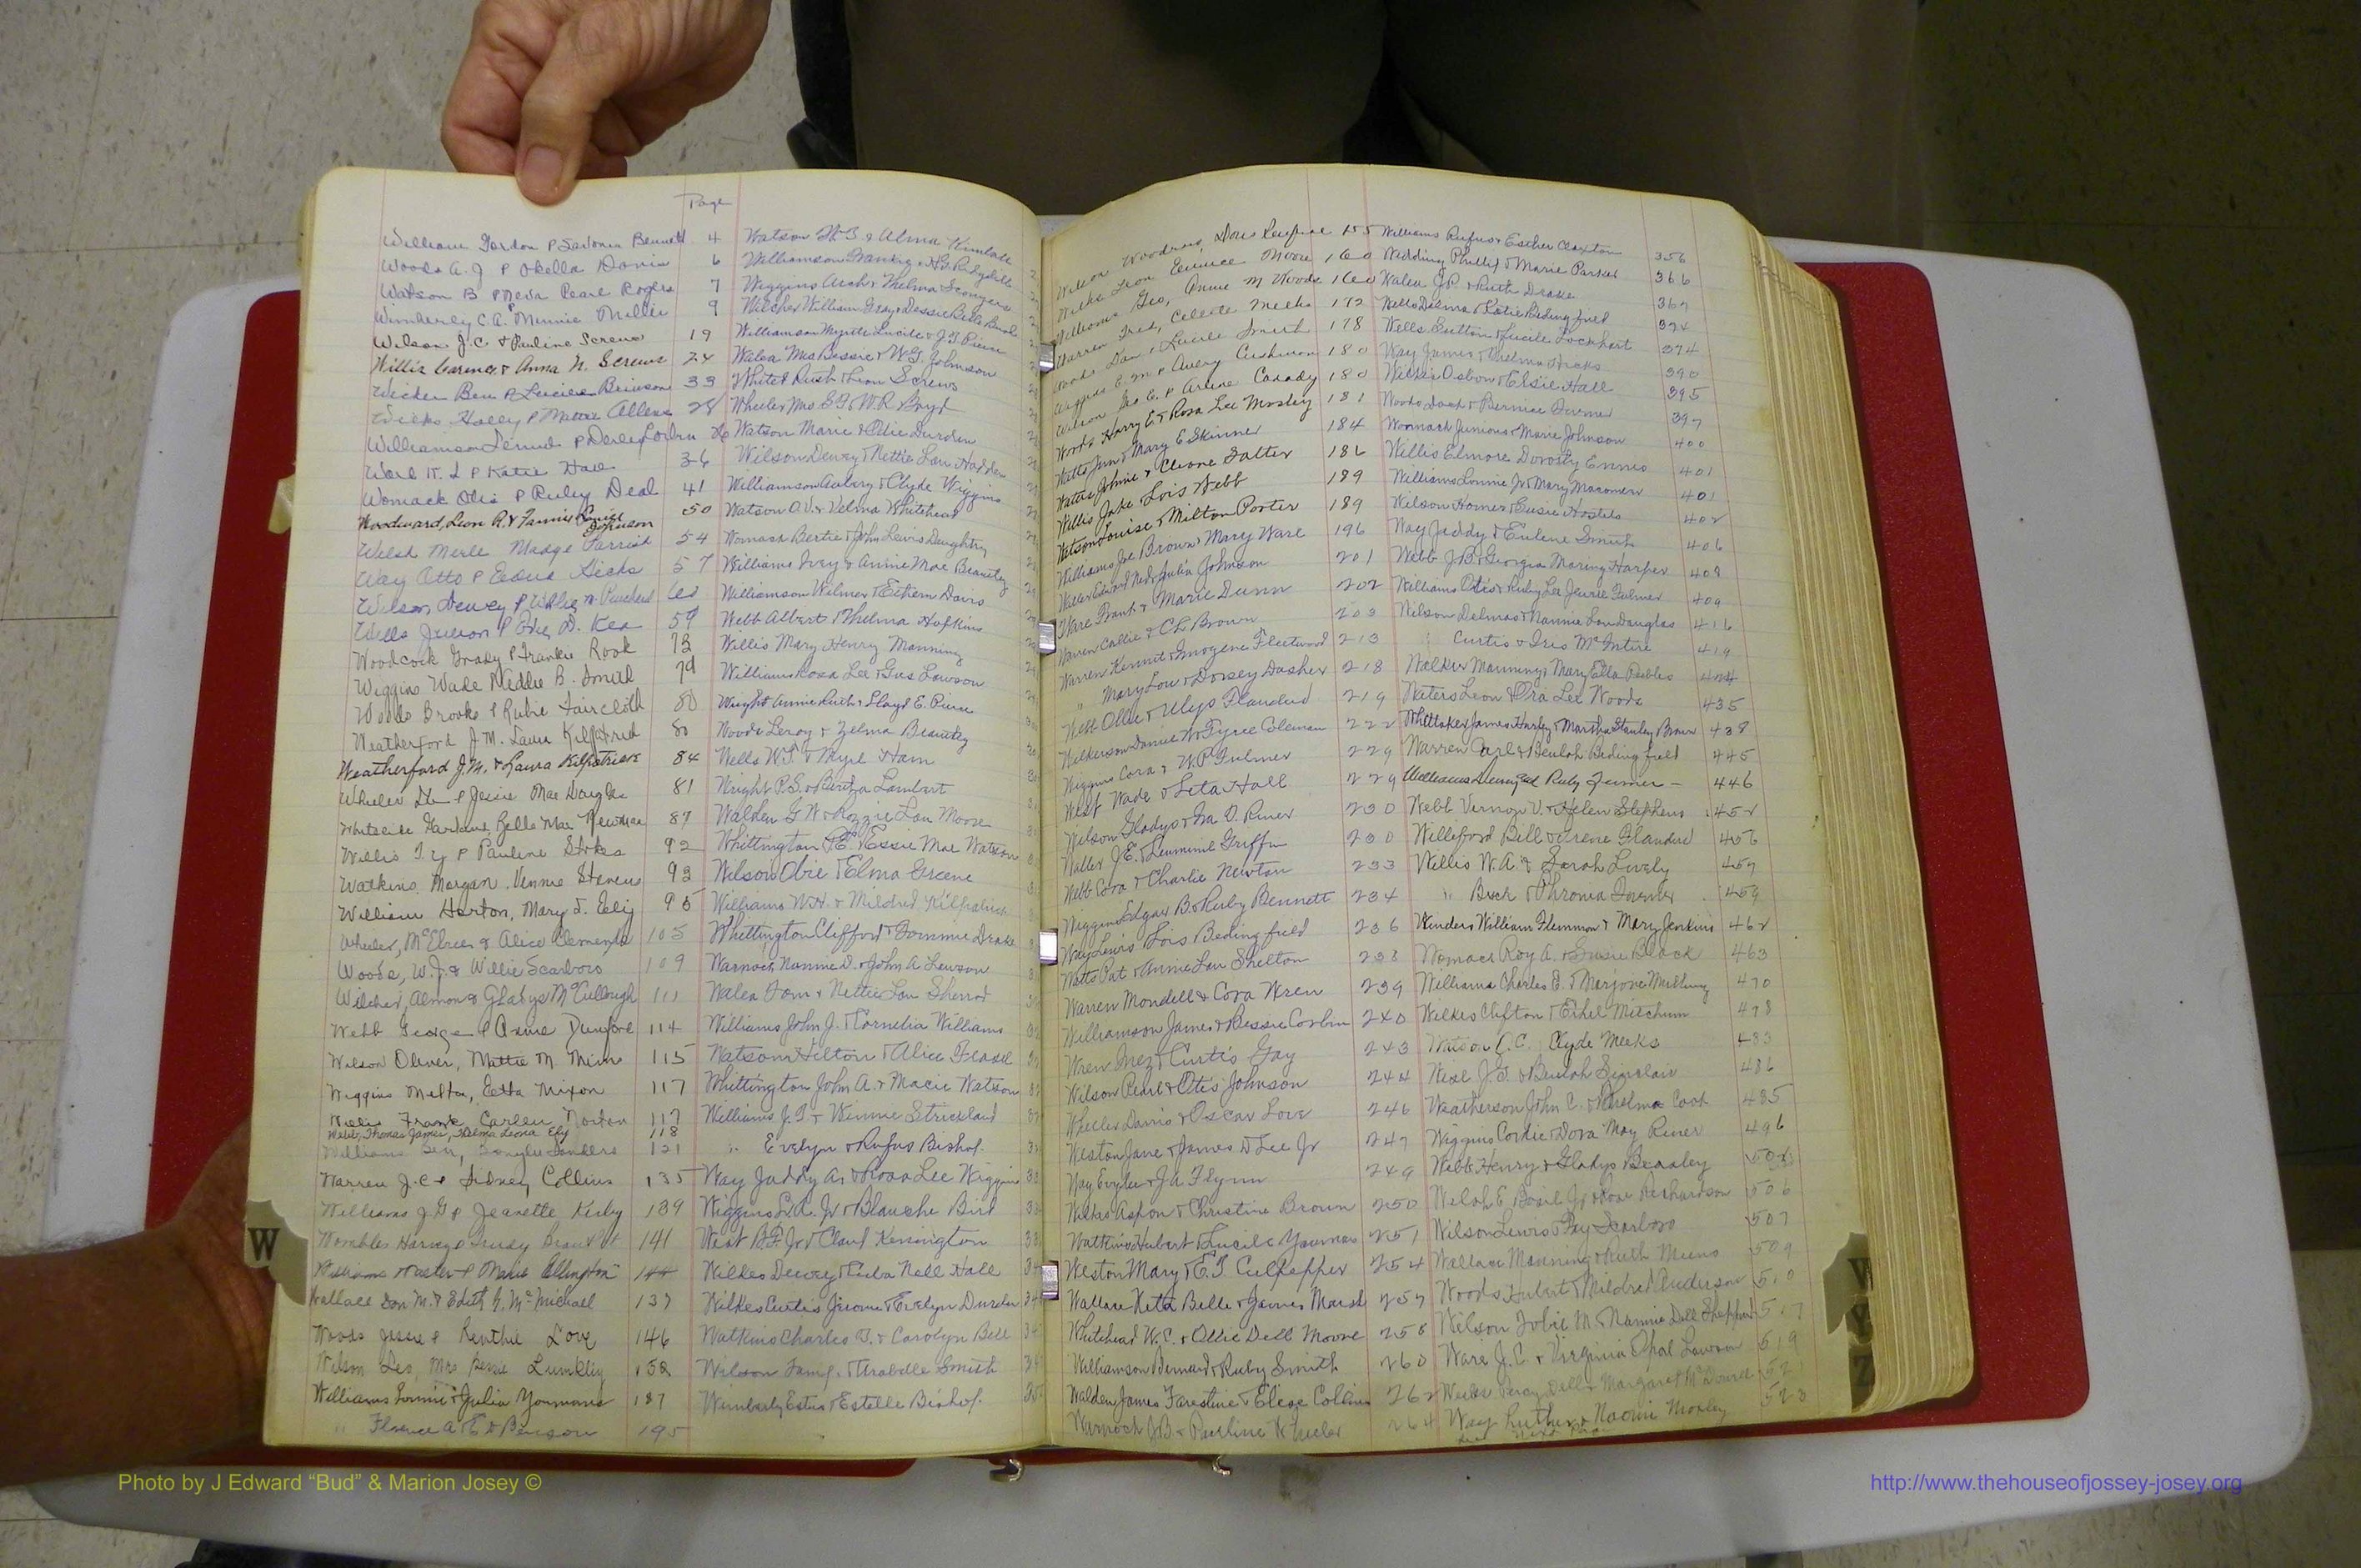 Page
William Gordon & Bennett 4
Woods A. J & Okella Davis 6
Watson B & Neva Pearl Rogers 7
Wimberley C. A. & Minnie Miller 9
Wilson J. C. & Pauline Screws 19
Willis & Anna N. Screws 24
Wicker Ben & Lucile Brinson 33
Wicks Holley & Mattie 28
Williamson
Ward & Katie Hall 36
Womack Otis & Ruby Deal 41
Woodward, Leon R. & Fannie Louise Johnson 50
Welsh Merle Madge Parrish 54
Way Otto & Hicks 57
Wilson Dewey & Willie
Wells & D. Kea 59
Woodcock Grady & Frankie Rook 73
Wiggins Wade & Addie B. Smith 79
Woods Brooks & Rubie Faircloth 80
Weatherford J. M. Laura Kilpatrick 80
Weatherford J. M. & Laura Kilpatrick 84
Wheeler & Jessie Mae Douglas 81
Whiteside Garland, Zella Mae Newman 87
Willis T. Y & Pauline Stokes 92
Watkins Morgan, Vennie Stevens 93
William Horton, Mary J. Ely 95
Wheeler, McElree & Alice Clements 105
Woods, W. J. & Willie Scarboro 109
Wilcher, Almon & Gladys McCullough 111
Webb George & Annie Dunford 114
Wilson Oliver, Mattie M. Mims 115
Wiggins Melta, Eetta Mixon 117
Willis Frank, Earleen Norton 117
Webb, Thomas James, Thelma Leona Ely 118
Williams Sanders 121
Warren J. C & Sidney Collins 135
Williams J. G & Jeanette Kirby 139
Wombles Harvey & Trudy 141
Williams Walter & Marie Ellington 144
Wallace Don M. & Edith G. McMichael 137
Woods Jessie & Renthie Love 146
Wilson Leo, Mrs Lumbley 152
Williams Lonnie & Julia Youmans 187
" Florence A & E. D Benson 195
Watson & Alma Kimball
Williamson
Wiggins Arch & Thelma
Wilcher William Gray & Dessie Belle
Williamson Myrtle Lucile & J. T. Pierce
Walea Mrs Bessie & W. G. Johnson
White Ruth & Leon Screws
Wheeler Mrs & W. R. Boyd
Watson Marie & Odie Durden
Wilson Dewey & Nettie Lou Hadden
Williamson Aubery & Clyde Wiggins
Watson O. V. & Velma Whitehead
Womack Bertie & John Lewis Daughtry
Williams Ivey & Annie Mae Beasley
Williamson Wilmer & Davis
Webb Albert & Thelma Hopkins
Willis Mary Henry Manning
Williams Rosa Lee & Gus Lawson
Wright Annie Ruth & Lloyd E. Pierce
Woods Leroy & Zelma Beasley
Wells W. T. & Myrl Ham
Wright P. S. & Lambert
Walden G. W. & Rozzie Lou Moore
Whittington & Essie Mae Watson
Wilson Obie & Elma Greene
Williams W. H. & Mildred Kilpatrick
Whittington Clifford & Tommie Drake
Warnock Nannie D. & John A Lawson
Walea Tom & Nettie Lou Sherrod
Williams John J. & Cornelia Williams
Watson Hilton & Alice
Whittington John A. & Macie Watson
Williams J. T. & Winnie Strickland
" Evelyn & Rufus Bishop.
Way Juddy A. & Rosa Lee Wiggins
Wiggins L. A. Jr & Blanche Bird
West B. F. Jr & Claud Kersington
Wilkes Dewey & Nell Hall
Wilkes Curtis Jerome & Evelyn Durden
Watkins Charles T. & Carolyn Bell
Wilson & Arabelle Smith
Wimberly Estus & Estelle Bishop.
Wilson Woodrow, 155
Wilkes Leon Eunice Moore 160
Williams Geo, Annie M Woods 160
Warren Fred, Celeste Meeks 172
Woods Dan & Lucile Smith 178
Wiggins E. M & Avery Cushman 180
Wilson & Arline Canady 180
Woods Harry E. & Rosa Lee Mosley 181
Watts Jim & Mary E Skinner 184
Waters Johnie & Cleone Salter 186
Willis Jake Lois Webb 189
Watson Louise & Milton Porter 189
Williams Joe Brown & Mary Ware 196
Waller Edward Ned & Julia Johnson 201
Ware Frank & Marie Dunn 202
Warren Callie & C. L Brown 203
Warren Kermit & Imogene Fleetwood 213
" Mary Lou & Dorsey Dasher 218
Webb Ollie & Flanders 219
Wilkerson Daniel W. Tyree Coleman 222
Wiggins Cora & W. P. Fulmer 229
West Wade & Leta Hall 229
Wilson Gladys & Ira O. Riner 230
Waller J. E. & Griffin 230
Webb Cora & Charlie Newton 233
Wiggins Edgar B. & Ruby Bennett 234
Way Lewis Lois Bedingfield 236
Watts Pat & Annie Lou Shelton 238
Warren Mondell & Cora Wren 239
Williamson James & Bessie Corbin 240
Wren Inez & Curtis Gay 243
Wilson Pearl & Otis Johnson 244
Wheeler Davis & Oscar Love 246
Weston Jane & James D Lee Jr 247
Way & J. A Flynn 249
Wilkes Aston & Christine Brown 250
Watkins Hubert & Lucile Youmans 251
Weston Mary & E. T. Culpepper 254
Wallace Keta Belle & James Marsh 257
Whitehead W. C. & Ollie Dell Moore 258
Williamson Bernard & Ruby Smith 260
Walden James Farestine & Elese Collins 262
Warnock J. B & Pauline Wheeler 264
Williams Rufus & Esther Claxton 356
Wedding Phillip & Marie Parker 366
Walea J. P. & Ruth Drake 367
Wells Delma & Katie Bedingfield 374
Wells & Lucile Lockhart 374
Way James & Thelma Hicks 390
Wilkes Osborn & Elsie Hall 395
Woods Jack & Bernice Turner 397
Womack Junious & Marie Johnson 400
Willis Elmore Dorothy Ennis 401
Williams Lonnie Jr. Mary 401
Wilson Homer & Susie 402
Way Juddy & Eulene Smith 406
Webb J. B. & Georgia Harper 408
Williams Otis & Ruby Lee Fulmer 409
Wilson Delmas & Nannie Lou Douglas 416
" Curtis & Iris McIntire 419
Walker Manning & Mary Etta Peebles
Waters Leon & Ora Lee Woods 435
Whittaker James Harley & Martha Stanley Brown 438
Warren Carl & Beulah Bedingfield 445
Williams & Ruby Turner - 446
Webb Vernon V. & Helen Stephens 452
Williford Bill & Irene Flanders 456
Willis W. A. & Sarah Lively 457
" Buck & Turner 459
Winders William Flemmon & Mary Jenkins 462
Womack Roy A. & Susie Black 463
Williams Charles E. & Marjorie 470
Wilkes Clifton & Ethel Mitchum 478
Watson A. C. Clyde Meeks 483
West J. T. & Beulah Sinclair 486
Weatherson John C. & Thelma Cook 485
Wiggins Cordie & Dora May Riner 496
Webb Henry & Gladys Beasley
Welch E Basil Jr & Richardson 506
Wilson Lewis & Fay Scarboro 507
Wallace Manning & Ruth Meeks 509
Woods Hubert & Mildred Anderson 510
Wilson Jobie M. & Nannie Dell Sheppard 517
Ware J. C. & Virginia Opal Lawson 519
Wicks Percy Dell & Margaret 52
Way Luther & Naomi Mosley 523
W
W
Y
Z
Photo by J Edward “Bud” & Marion Josey ©
http://www.thehouseofjossey-josey.org